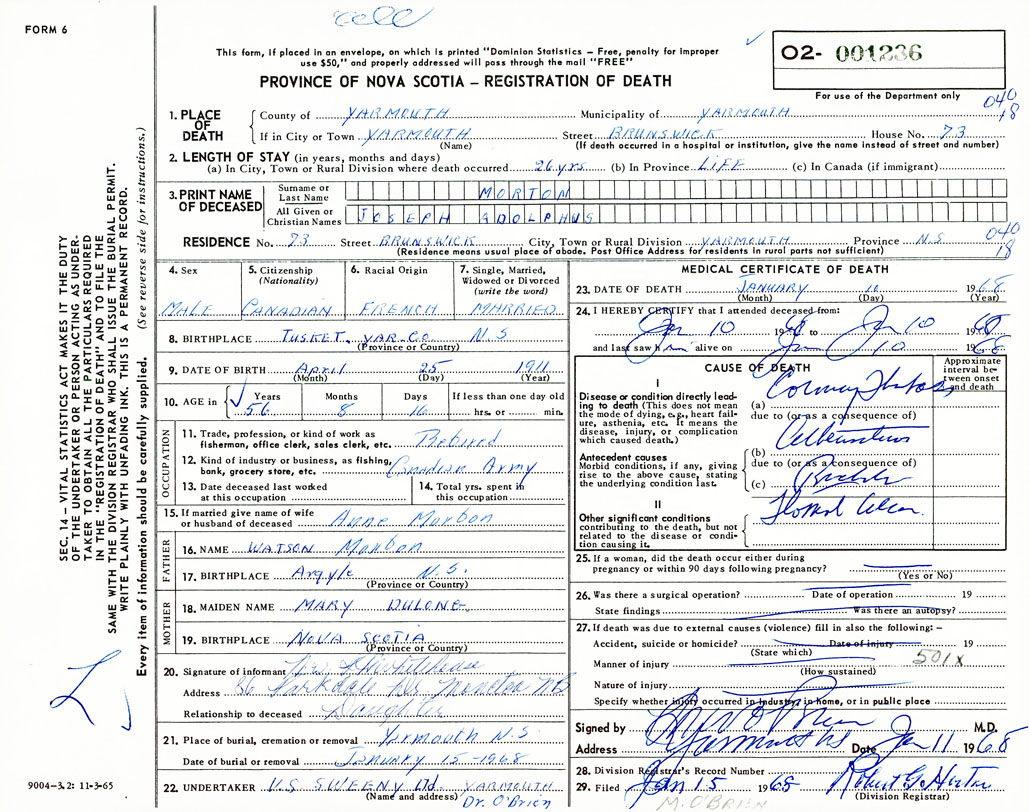 FORM 6
This form, if placed in an envelope, on which is printed "Dominion Statistics – Free, penalty for improper
use $50," and properly addressed will pass through the mail "FREE"
PROVINCE OF NOVA SCOTIA – REGISTRATION OF DEATH
02- 001236
For use of the Department only
040
18
1. PLACE OF DEATH
County of YARMOUTH Municipality of YARMOUTH
If in City or Town YARMOUTH Street BRUNSWICK House No. 73
(Name) (If death occurred in a hospital or institution, give the name instead of street and number)
2. LENGTH OF STAY (in years, months and days)
(a) In City, Town or Rural Division where death occurred 26 yrs. (b) In Province LIFE (c) In Canada (if immigrant)
3. PRINT NAME OF DECEASED
Surname or Last Name MORTON
All Given or Christian Names JOSEPH ADOLPHUS
RESIDENCE No. 73 Street BRUNSWICK City, Town or Rural Division YARMOUTH Province N.S
(Residence means usual place of abode. Post Office Address for residents in rural parts not sufficient)
040
18
4. Sex
MALE
5. Citizenship (Nationality)
CANADIAN
6. Racial Origin
FRENCH
7. Single, Married, Widowed or Divorced (write the word)
MARRIED
8. BIRTHPLACE TUSKET, YAR-CO. N.S
(Province or Country)
9. DATE OF BIRTH April 25 1911
(Month) (Day) (Year)
10. AGE in Years Months Days If less than one day old
56 8 16 hrs. or min.
OCCUPATION
11. Trade, profession, or kind of work as fisherman, office clerk, sales clerk, etc. Retired
12. Kind of industry or business, as fishing, bank, grocery store, etc. Canadian Army
13. Date deceased last worked at this occupation
14. Total yrs. spent in this occupation
15. If married give name of wife or husband of deceased Anne Morton
FATHER
16. NAME WATSON Morton
17. BIRTHPLACE Argyle N.S.
(Province or Country)
MOTHER
18. MAIDEN NAME MARY
19. BIRTHPLACE NOVA SCOTIA
(Province or Country)
20. Signature of informant Mrs.
Address 86 Parkdale Dr. Moncton NB
Relationship to deceased Daughter
21. Place of burial, cremation or removal Yarmouth N.S
Date of burial or removal JANUARY 15-1968
22. UNDERTAKER V.S. SWEENY Ltd. YARMOUTH
(Name and address) Dr. O'Brien
MEDICAL CERTIFICATE OF DEATH
23. DATE OF DEATH JANUARY 10 1968
(Month) (Day) (Year)
24. I HEREBY CERTIFY that I attended deceased from:
Jan 10 1968 to Jan 10 1968
and last saw him alive on Jan 10 1968
CAUSE OF DEATH
Approximate interval between onset and death
I
Disease or condition directly leading to death (This does not mean the mode of dying, e.g., heart failure, asthenia, etc. It means the disease, injury, or complication which caused death.)
(a) Coronary
due to (or as a consequence of)
Antecedent causes
Morbid conditions, if any, giving rise to the above cause, stating the underlying condition last.
(b)
due to (or as a consequence of)
(c)
II
Other significant conditions contributing to the death, but not related to the disease or condition causing it.
25. If a woman, did the death occur either during pregnancy or within 90 days following pregnancy?
(Yes or No)
26. Was there a surgical operation? Date of operation 19
State findings Was there an autopsy?
27. If death was due to external causes (violence) fill in also the following: –
Accident, suicide or homicide? Date of injury 19
(State which)
501X
Manner of injury
(How sustained)
Nature of injury
Specify whether injury occurred in industry, in home, or in public place
Signed by M.D.
Address Yarmouth NS Date Jan 11 1968
28. Division Registrar's Record Number
29. Filed Jan 15 1968 Robert G.
(Division Registrar)
M. O'BRIEN
SEC. 14 – VITAL STATISTICS ACT MAKES IT THE DUTY
OF THE UNDERTAKER OR PERSON ACTING AS UNDER-
TAKER TO OBTAIN ALL THE PARTICULARS REQUIRED
IN THE "REGISTRATION OF DEATH" AND TO FILE THE
SAME WITH THE DIVISION REGISTRAR WHO SHALL ISSUE THE BURIAL PERMIT.
WRITE PLAINLY WITH UNFADING INK. THIS IS A PERMANENT RECORD.
Every item of information should be carefully supplied. (See reverse side for instructions.)
9004-3.2: 11-3-65